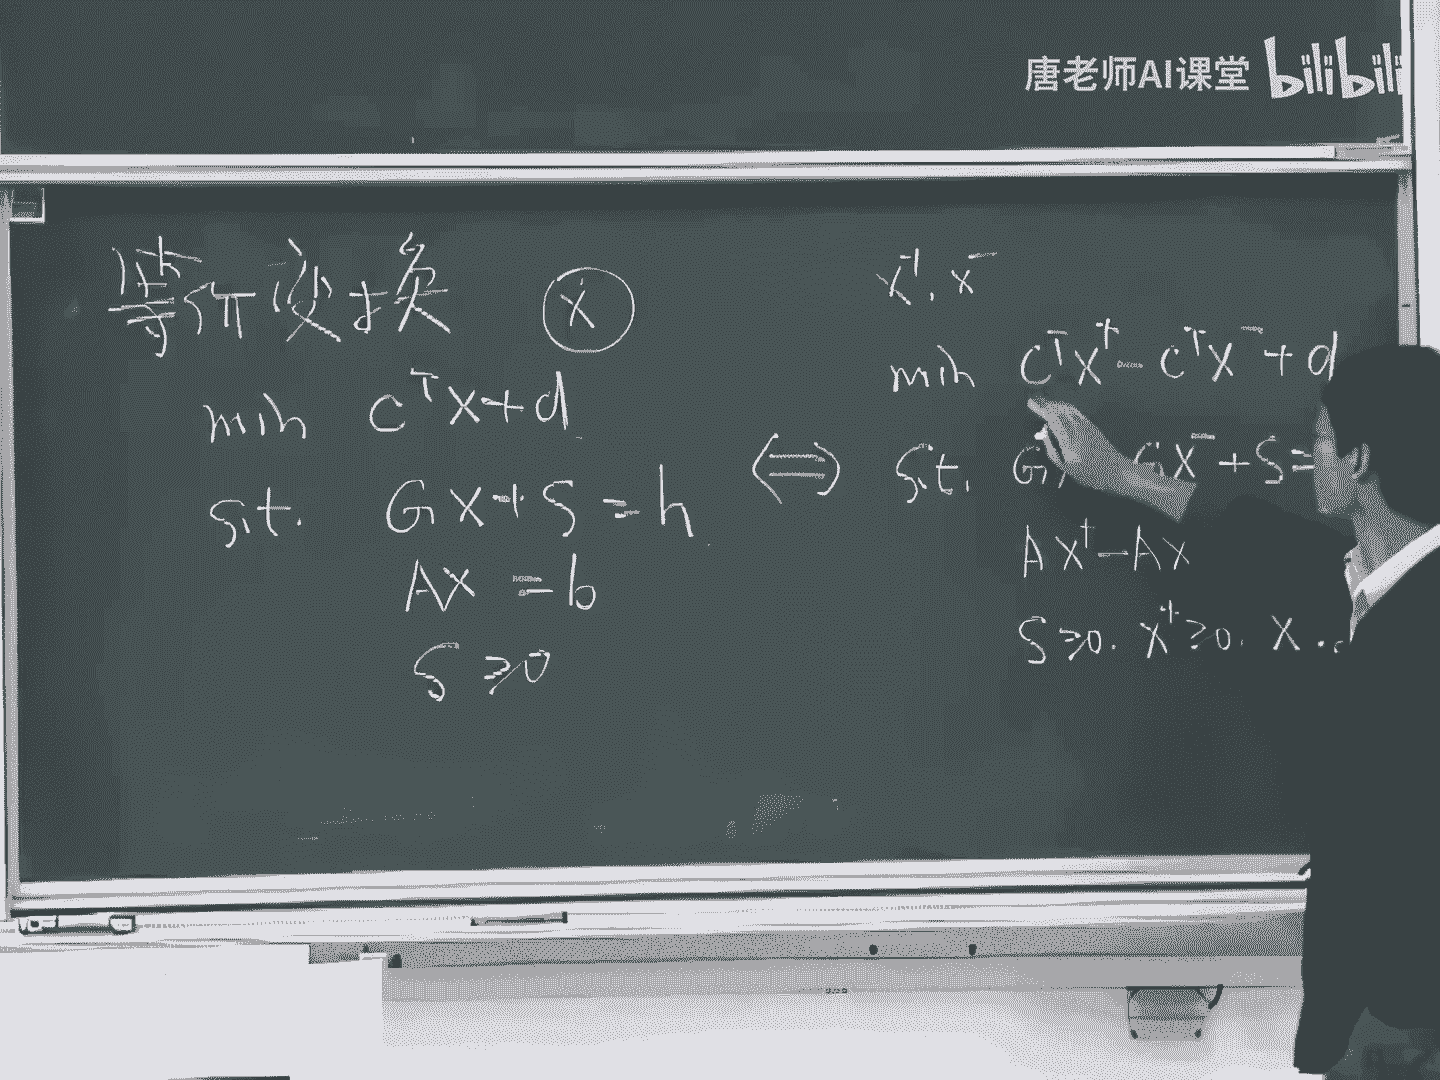 唐老师AI课堂 bilibili
等价变换 x
min cᵀx+d
s.t. Gx+s=h
Ax=b
s≥0
⇔
x⁺, x⁻
min cᵀx⁺-cᵀx⁻+d
s.t. Gx Gx⁻+s=
Ax⁺-Ax
s≥0. x⁺≥0. x